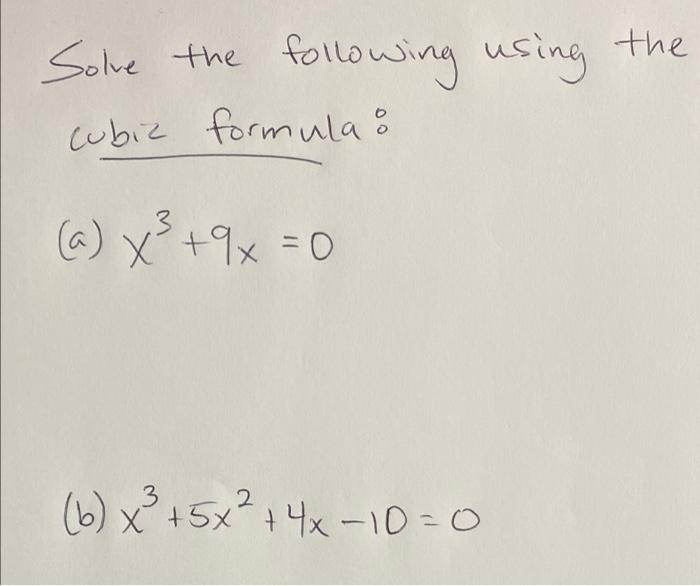 Solve the following using the
cubic formula:
(a) x³ + 9x = 0
(b) x³ + 5x² + 4x - 10 = 0